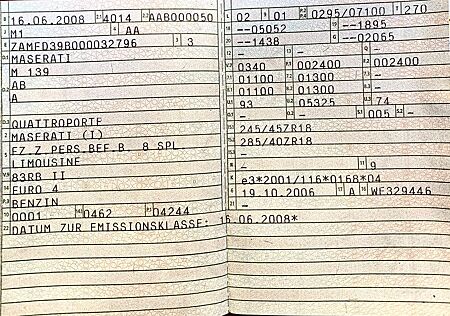 16.06.2008 4014 AAB000050
M1 AA
ZAMFD39B000032796 3
MASERATI
M 139
AB
A
QUATTROPORTE
MASERATI (I)
FZ.Z.PERS.BEF.B. 8 SPL
LIMOUSINE
83RR II
EURO 4
BENZIN
0001 0462 04244
DATUM ZUR EMISSIONSKLASSE: 16.06.2008*
02 01 0295/07100 270
--05052 --1895
--1438 --02065
- - -
0340 002400 002400
01100 01300 -
01100 01300 -
93 05325 74
- - 005 -
245/45ZR18
285/40ZR18
-
- 9
e3*2001/116*0168*04
19.10.2006 A WF329446
-